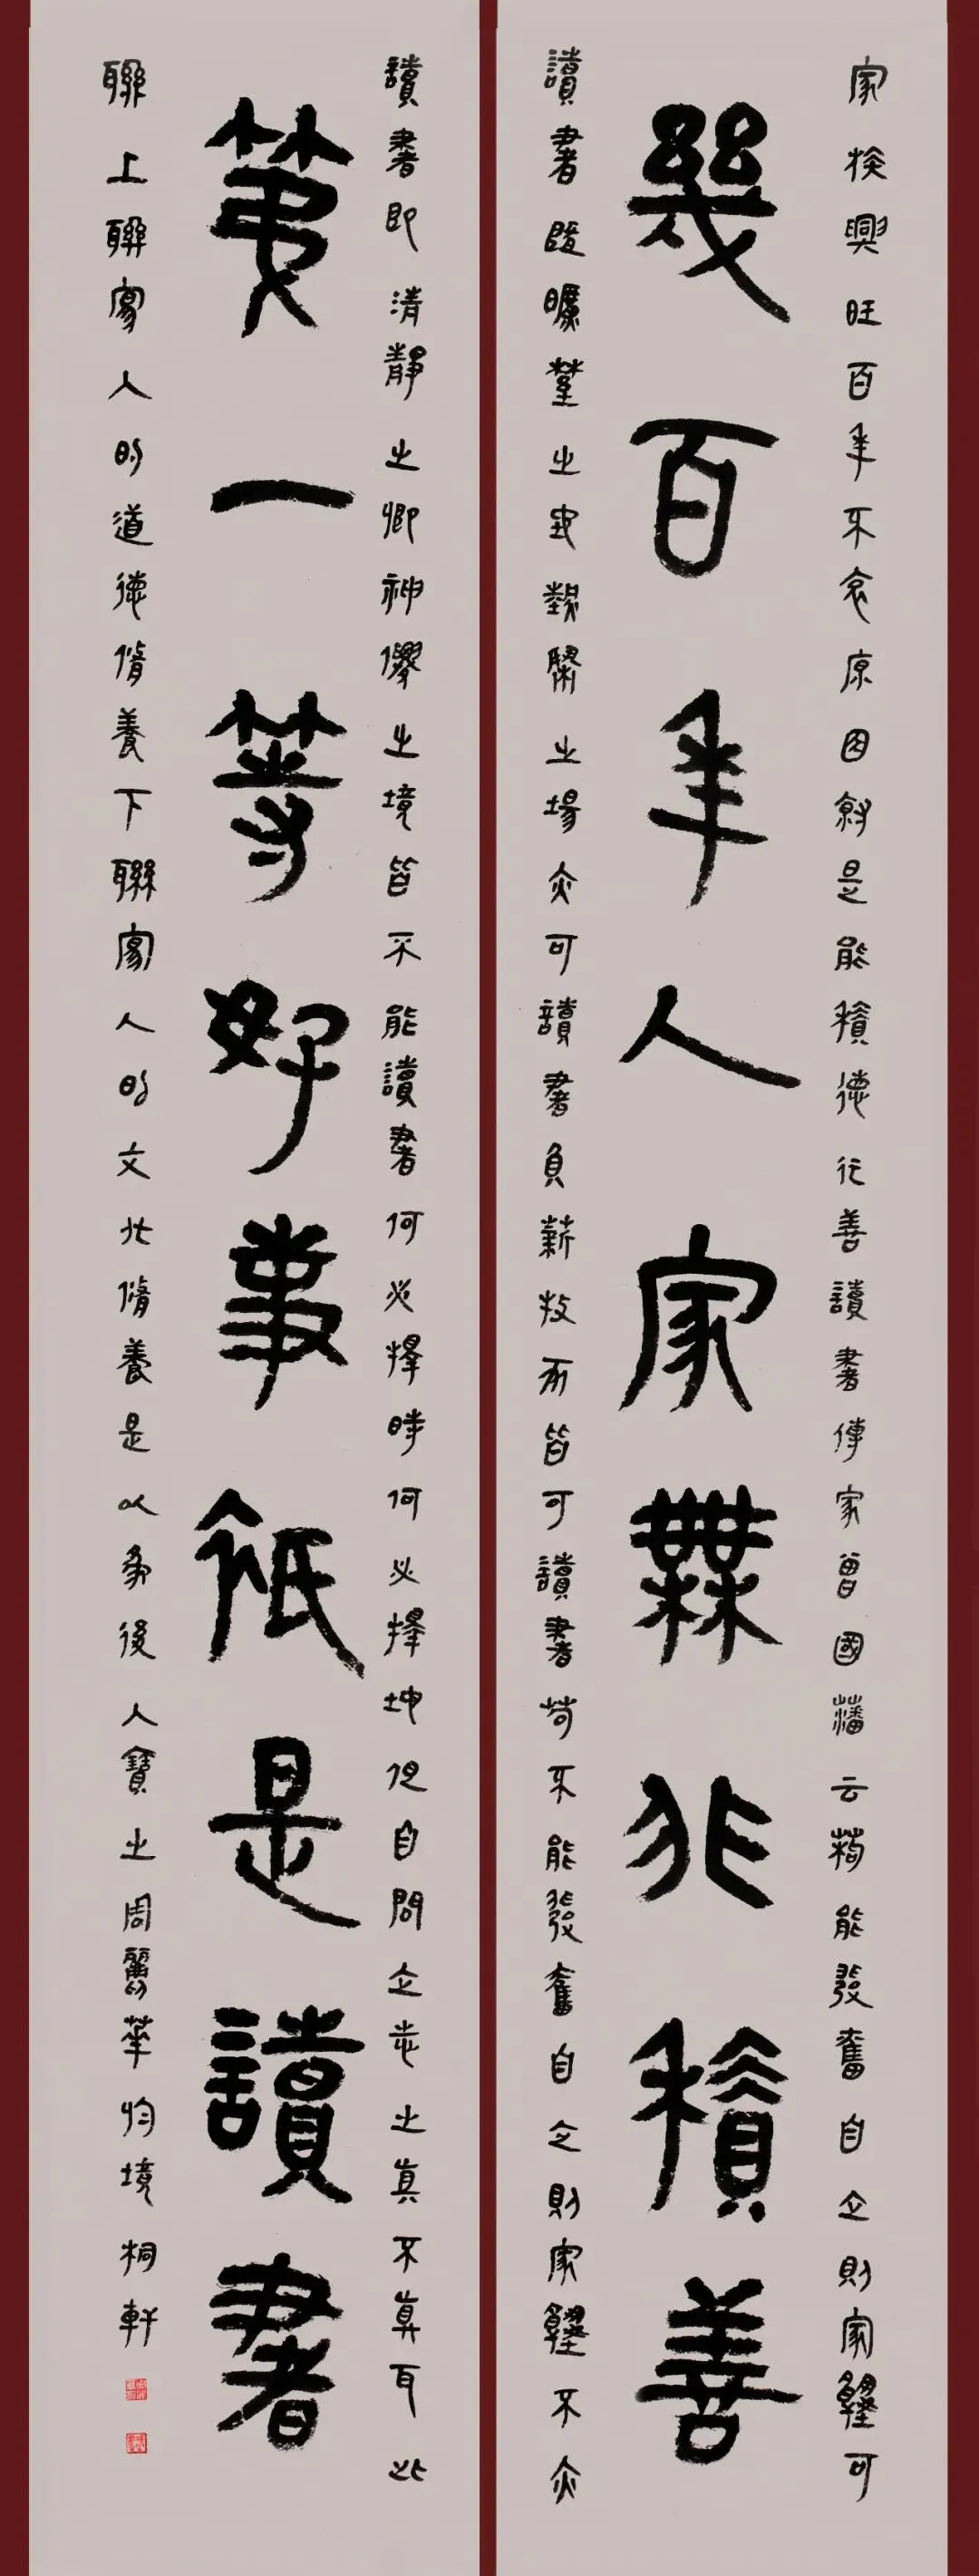 家族興旺百年不衰原因就是能積德行善讀書傳家曾國藩云苟能發奮自立則家塾可
幾百年人家無非積善
讀書即曠野之地熱鬧之場亦可讀書負薪牧豕皆可讀書苟不能發奮自立則家塾不
亦
讀書即清靜之鄉神僊之境皆不能讀書何必擇時何必擇地但自問立志之真不真耳此
第一等好事祇是讀書
聯上聯寫人的道德脩養下聯寫人的文化脩養是以為後人寶之周麗華 境桐軒